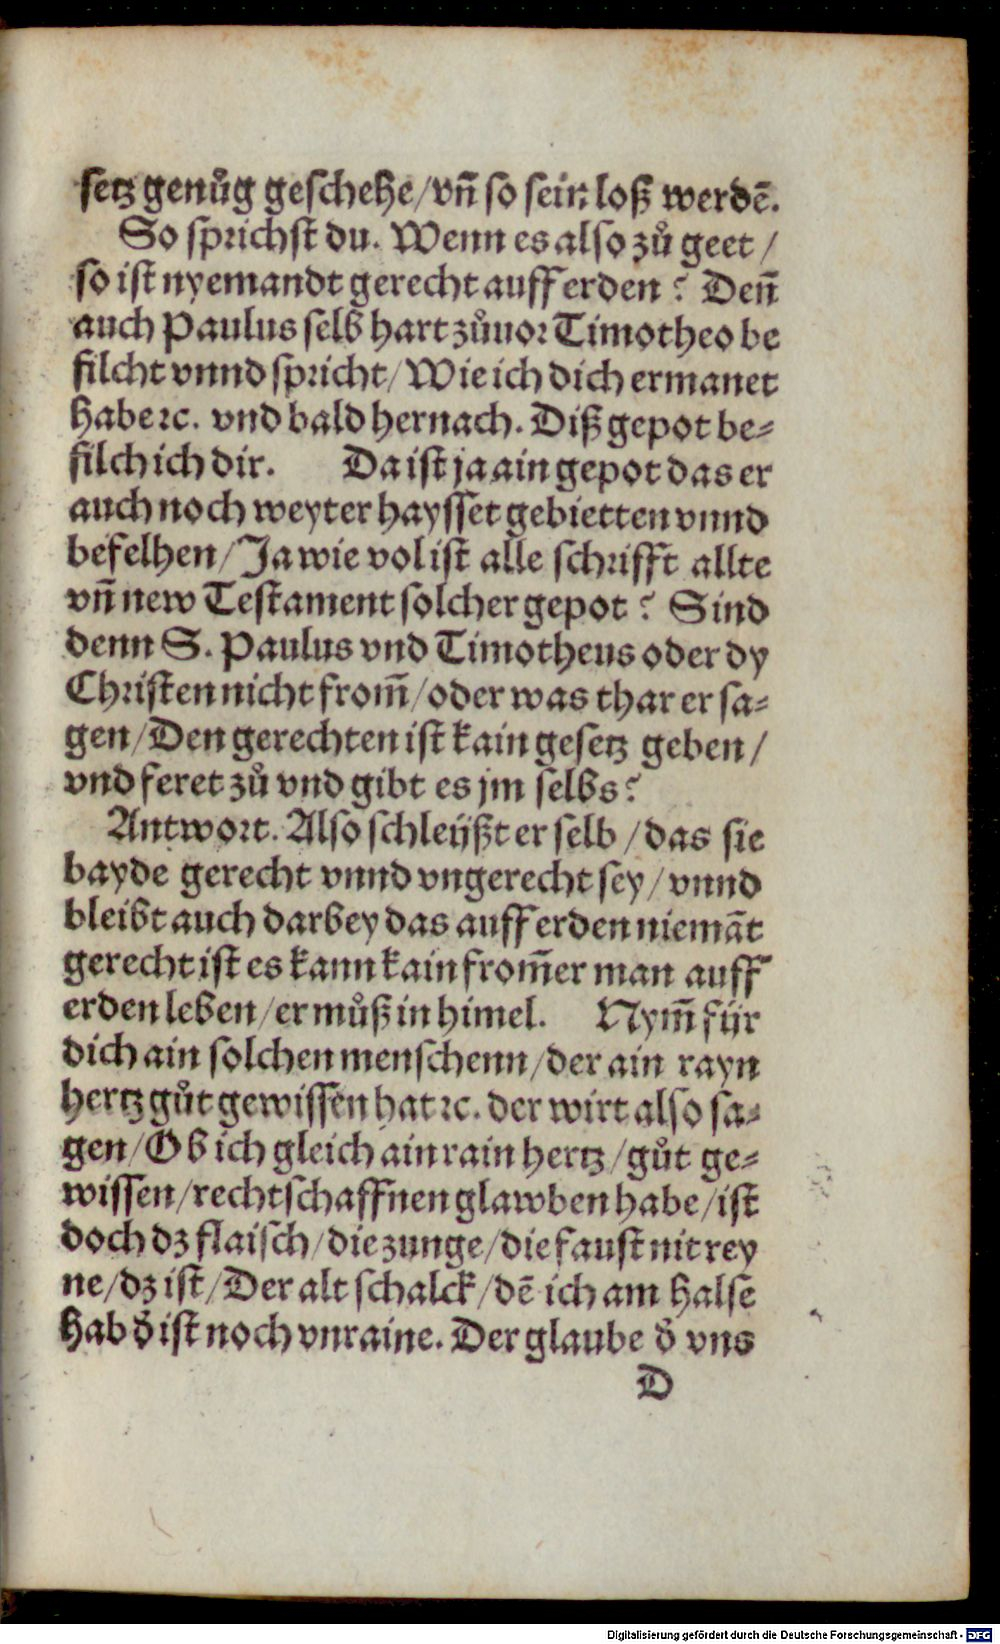 setz genůg geschehe/vn̄ so sein loß werdē.
So sprichst du. Wenn es also zů geet/
so ist nyemandt gerecht auff erden? Den̄
auch Paulus selb hart zůuor Timotheo be
filcht vnnd spricht/Wie ich dich ermanet
habe ⁊c. vnd bald hernach. Diß gepot be⸗
filch ich dir. Da ist ja ain gepot das er
auch noch weyter haysset gebietten vnnd
befelhen/Ja wie vol ist alle schrifft allte
vn̄ new Testament solcher gepot? Sind
denn S. Paulus vnd Timotheus oder dy
Christen nicht from̄/oder was thar er sa⸗
gen/Den gerechten ist kain gesetz geben/
vnd feret zů vnd gibt es jm selbs?
Antwort. Also schleüßt er selb/das sie
bayde gerecht vnnd vngerecht sey/vnnd
bleibt auch darbey das auff erden niemāt
gerecht ist es kann kain from̄er man auff
erden leben/er můß in himel. Nym̄ für
dich ain solchen menschenn/der ain rayn
hertz gůt gewissen hat ⁊c. der wirt also sa⸗
gen/Ob ich gleich ain rain hertz/gůt ge⸗
wissen/rechtschaffnen glawben habe/ist
doch dz flaisch/die zunge/die faust nit rey
ne/dz ist/Der alt schalck/dē ich am halse
hab d̕ ist noch vnraine. Der glaube d̕ vns
D
Digitalisierung gefördert durch die Deutsche Forschungsgemeinschaft - DFG